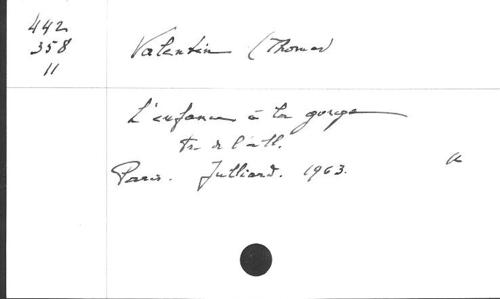 442
358
11
Valentin (Thomas)
L'enfance à la gorge
Tr. de l'all.
Paris. Julliard. 1963.